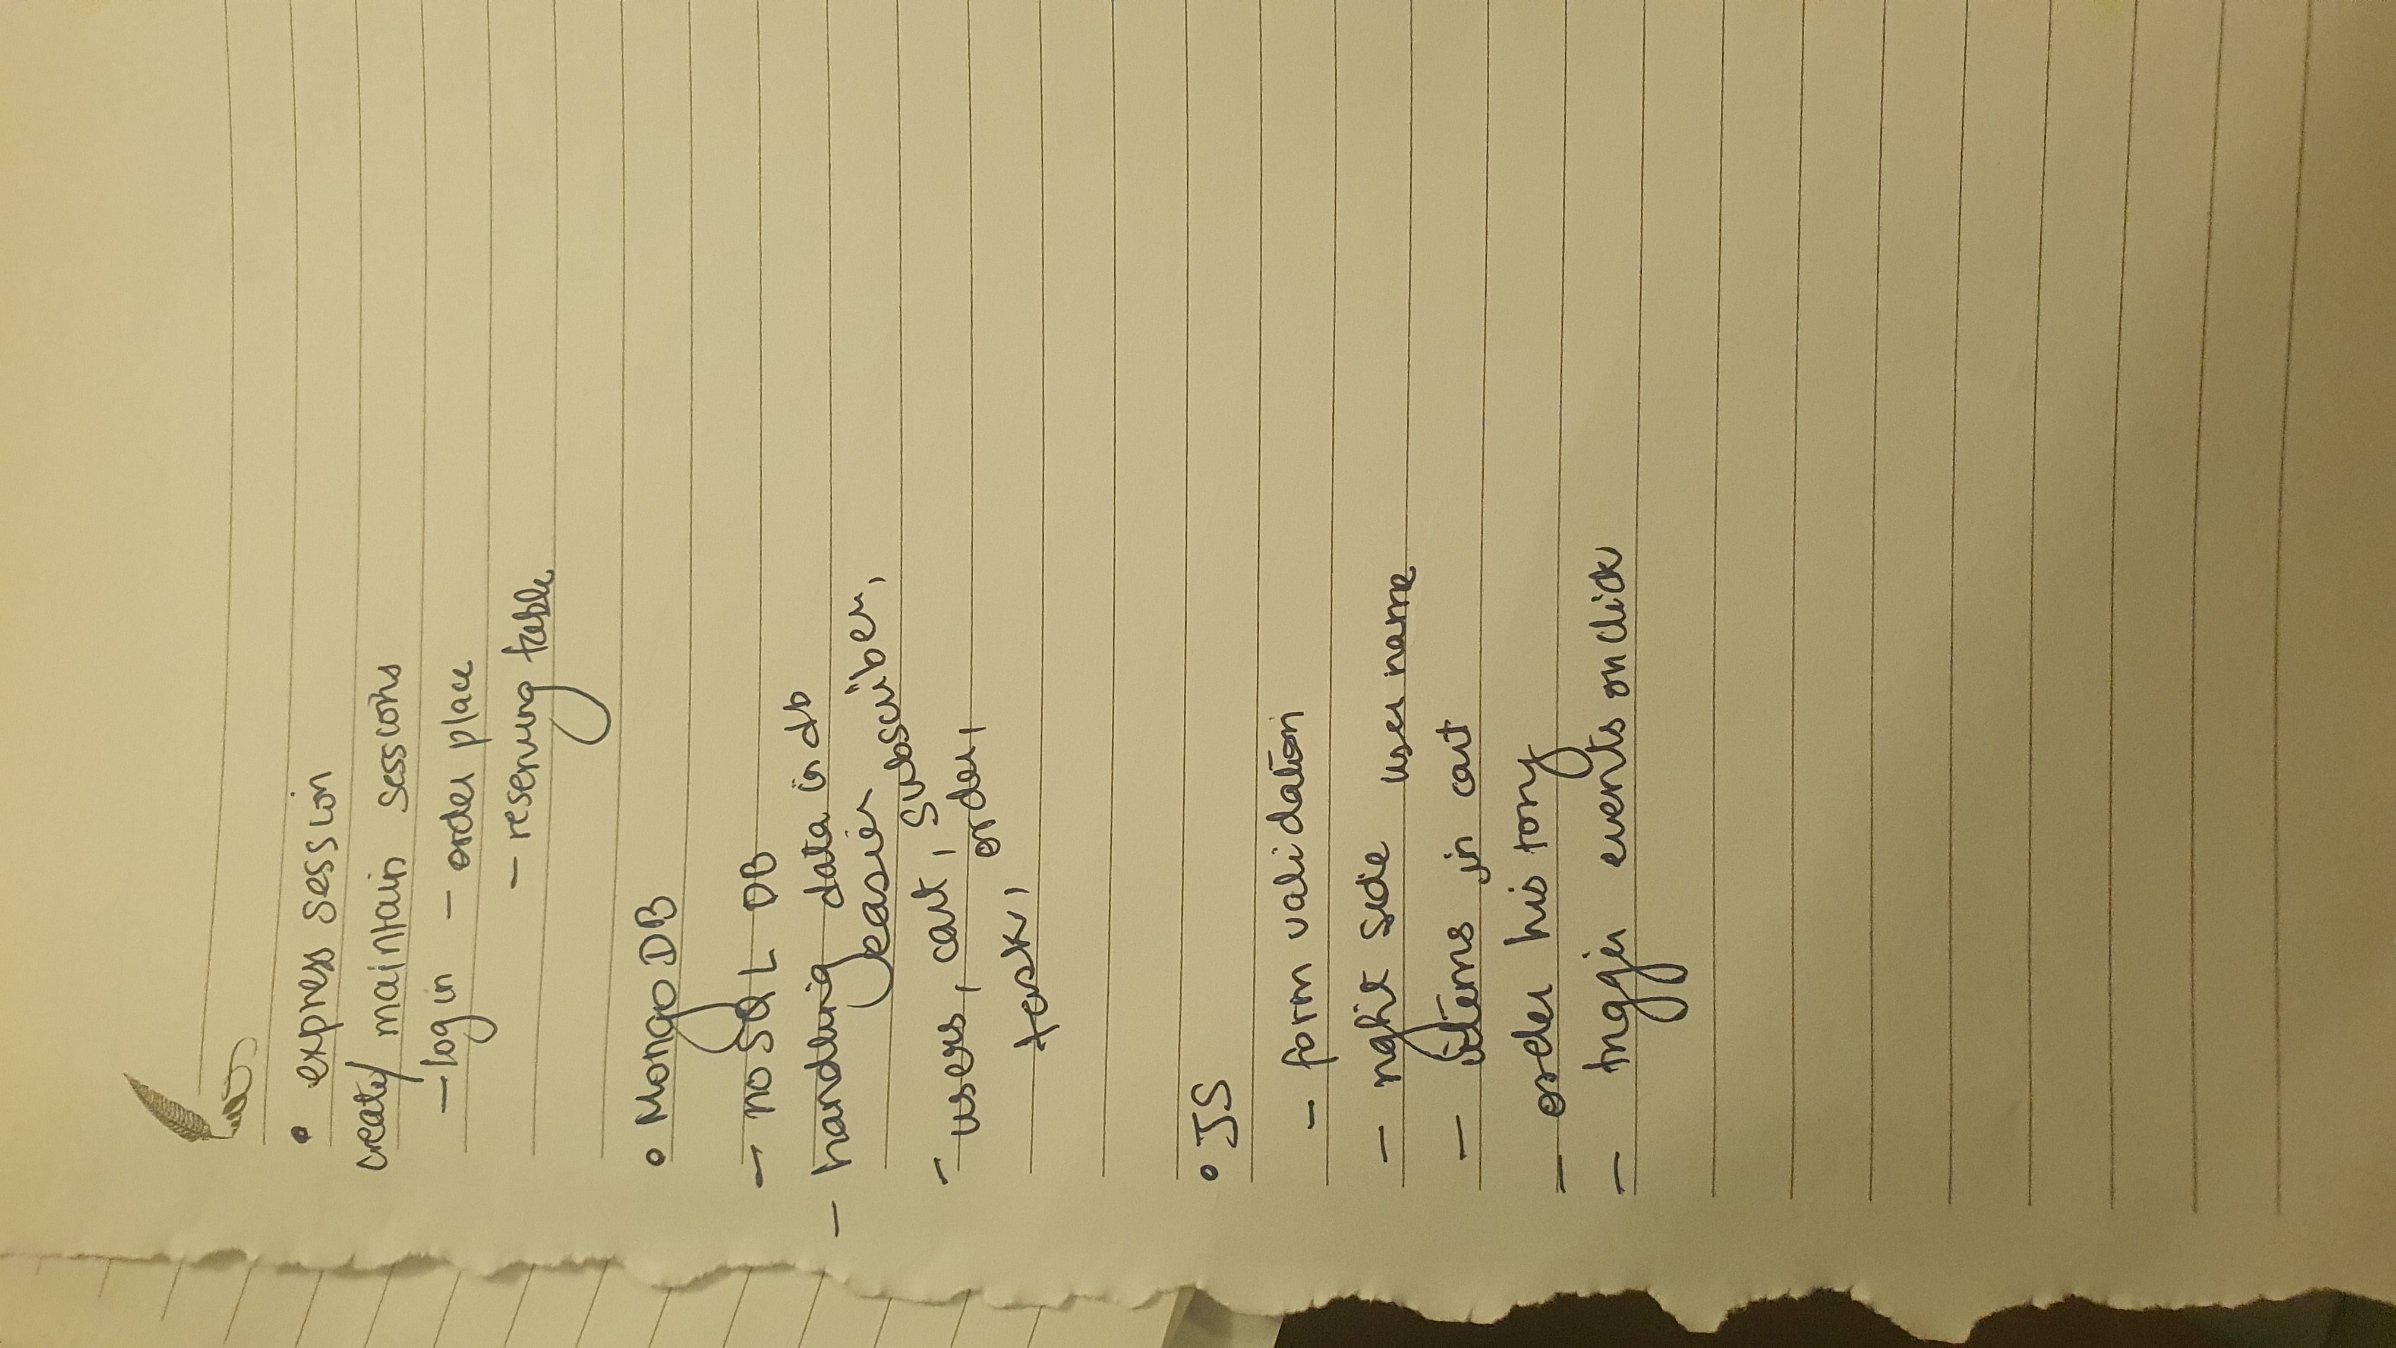 • express session
create/ maintain sessions
- login - order place
- reserving table
• MongoDB
- noSQL DB
- handling data in db
easier
- users, cart, subscriber,
task, order,
• JS
- form validation
- right side user name
- items in cart
- order history
- trigger events onclick